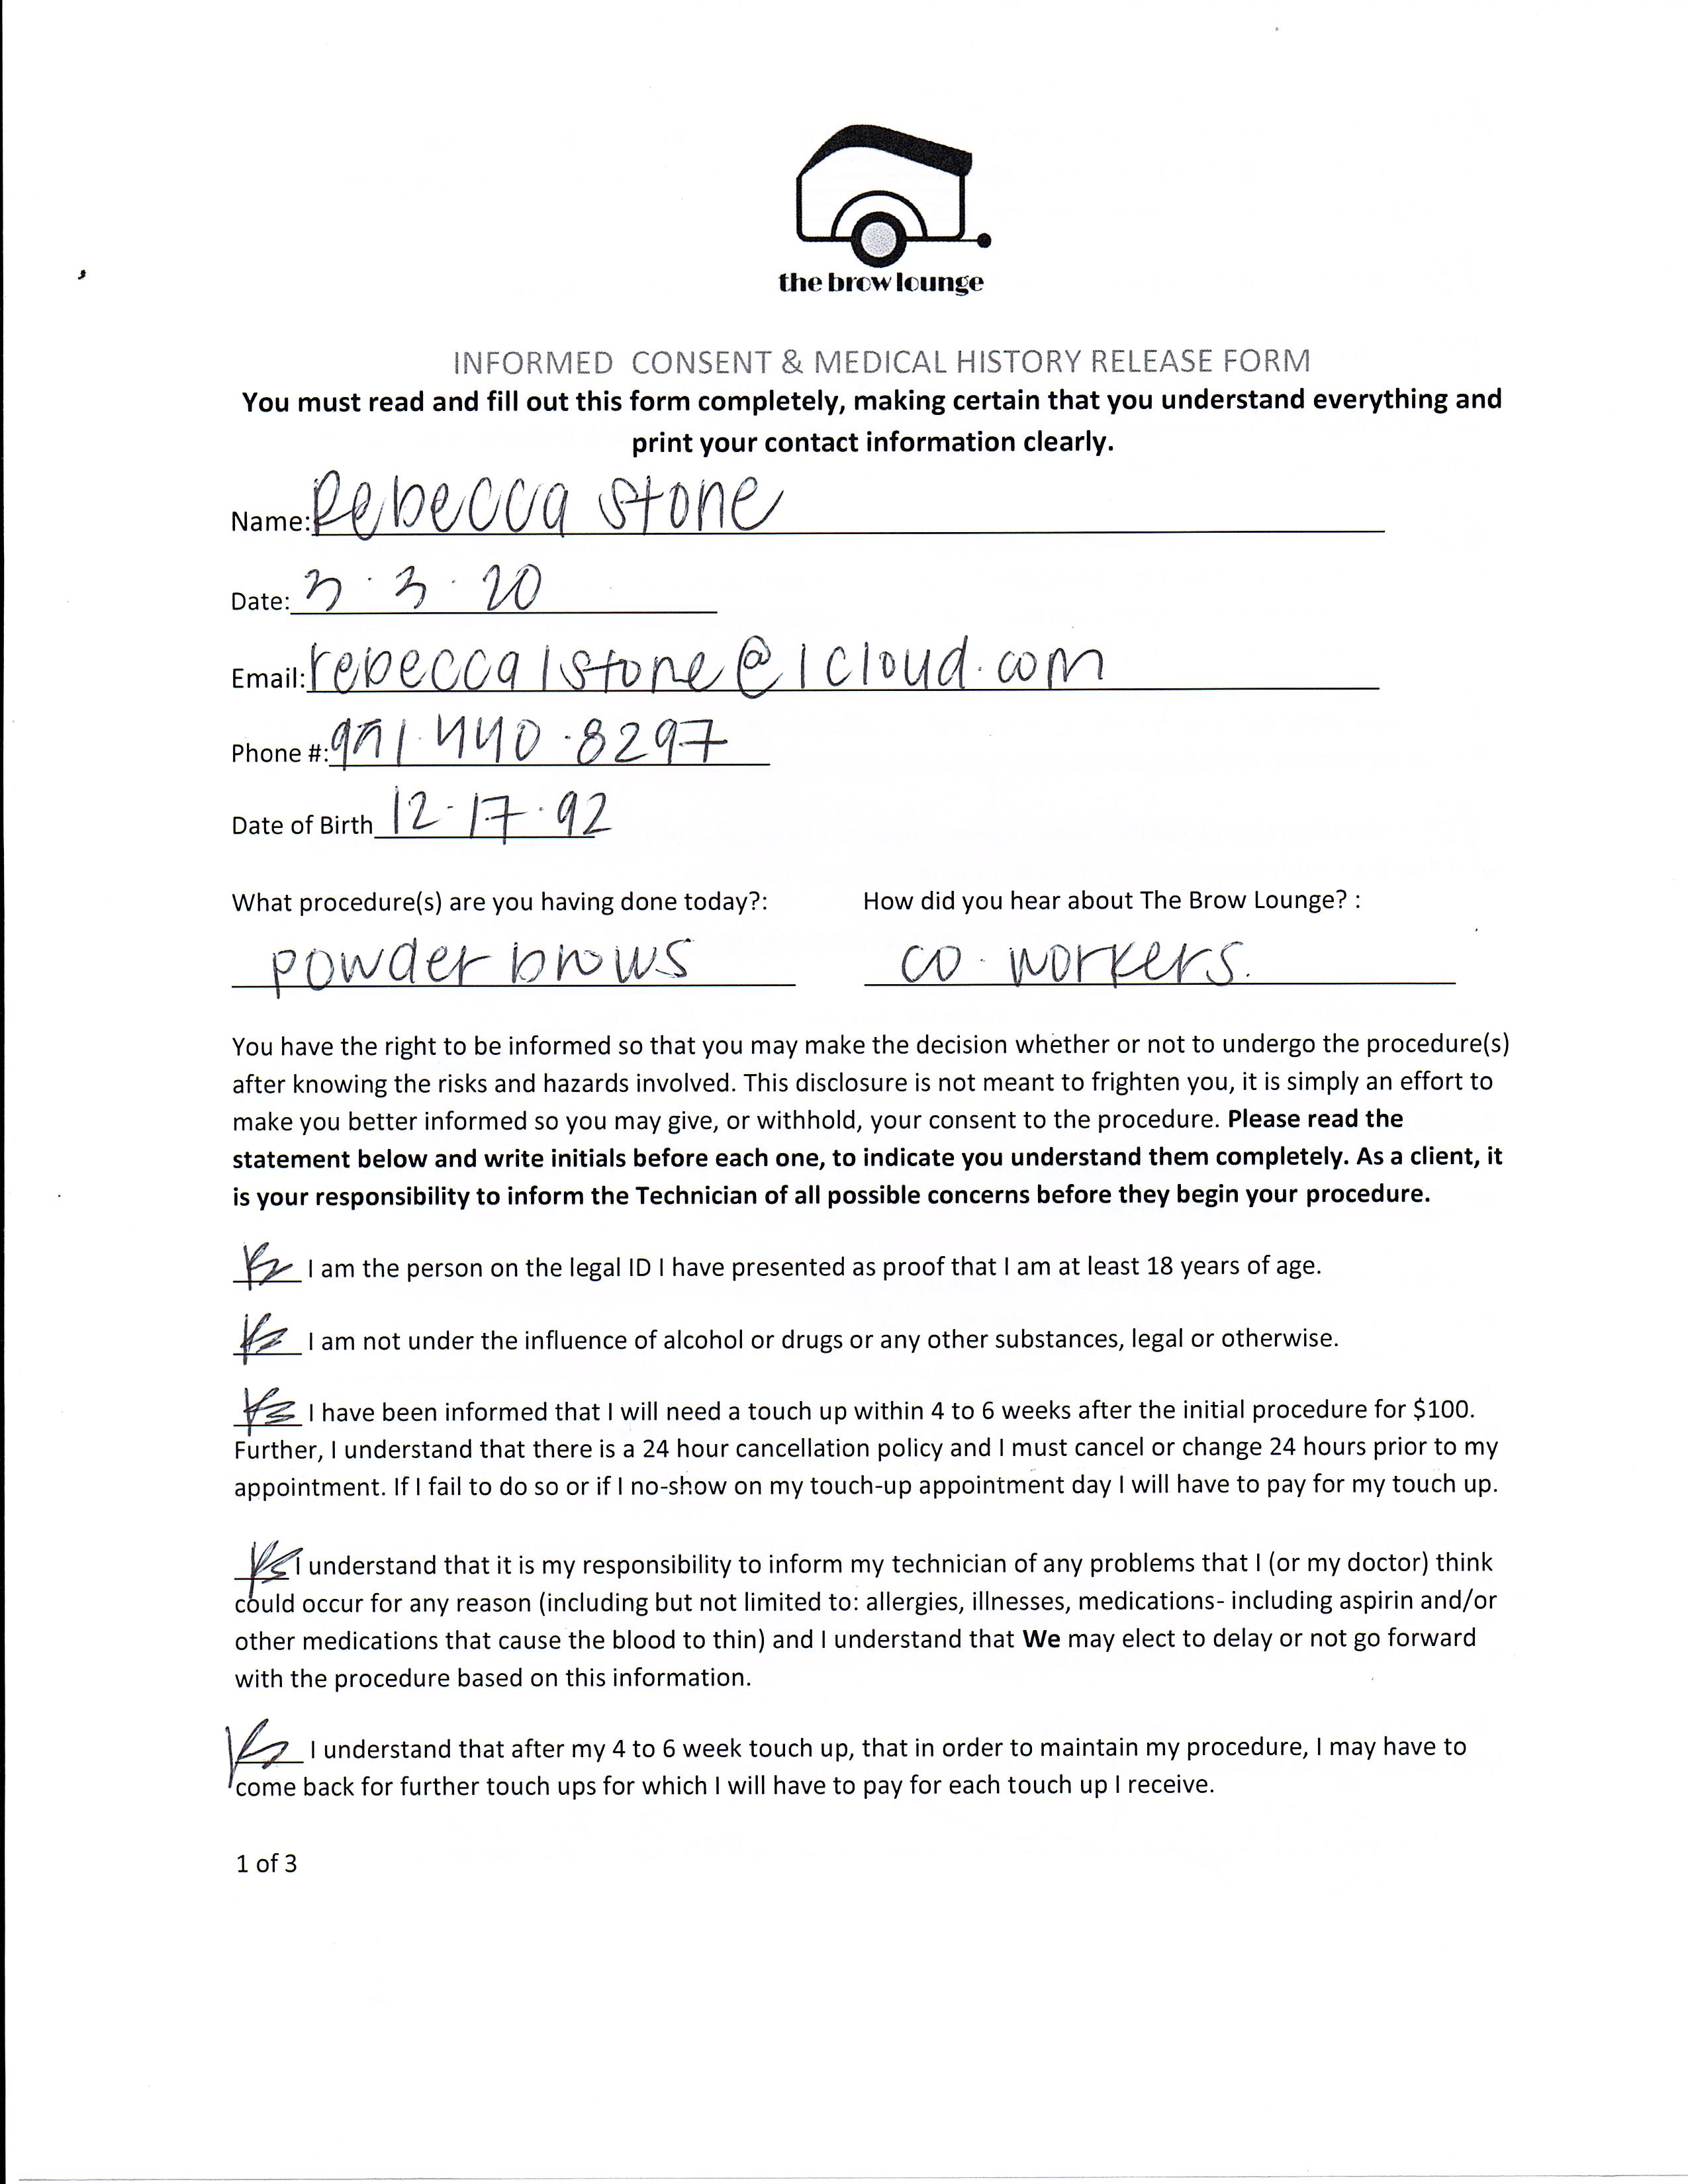 the brow lounge
INFORMED CONSENT & MEDICAL HISTORY RELEASE FORM
You must read and fill out this form completely, making certain that you understand everything and
print your contact information clearly.
Name: Rebecca Stone
Date: 3.3.20
Email: rebeccalstone@icloud.com
Phone #: 440.8297
Date of Birth 12.17.92
What procedure(s) are you having done today?: How did you hear about The Brow Lounge? :
powder brows co-workers.
You have the right to be informed so that you may make the decision whether or not to undergo the procedure(s)
after knowing the risks and hazards involved. This disclosure is not meant to frighten you, it is simply an effort to
make you better informed so you may give, or withhold, your consent to the procedure. Please read the
statement below and write initials before each one, to indicate you understand them completely. As a client, it
is your responsibility to inform the Technician of all possible concerns before they begin your procedure.
RS I am the person on the legal ID I have presented as proof that I am at least 18 years of age.
RS I am not under the influence of alcohol or drugs or any other substances, legal or otherwise.
RS I have been informed that I will need a touch up within 4 to 6 weeks after the initial procedure for $100.
Further, I understand that there is a 24 hour cancellation policy and I must cancel or change 24 hours prior to my
appointment. If I fail to do so or if I no-show on my touch-up appointment day I will have to pay for my touch up.
RS I understand that it is my responsibility to inform my technician of any problems that I (or my doctor) think
could occur for any reason (including but not limited to: allergies, illnesses, medications- including aspirin and/or
other medications that cause the blood to thin) and I understand that We may elect to delay or not go forward
with the procedure based on this information.
RS I understand that after my 4 to 6 week touch up, that in order to maintain my procedure, I may have to
come back for further touch ups for which I will have to pay for each touch up I receive.
1 of 3